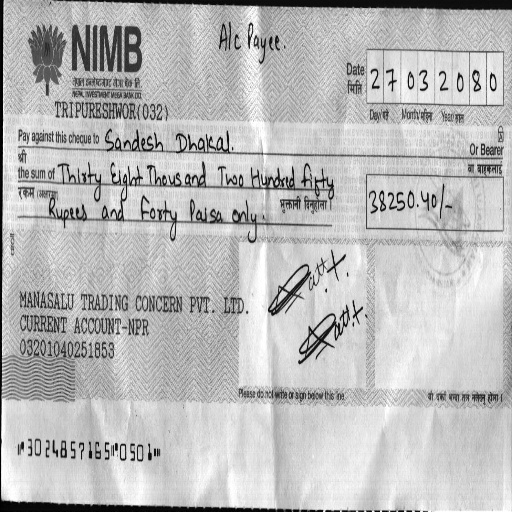 A/c Payee.
NIMB
नेपाल इन्भेष्टमेन्ट मेगा बैंक लि.
NEPAL INVESTMENT MEGA BANK LTD.
TRIPURESHWOR(032)
Date
मिति
27032080
Day/गते Month/महिना Year/साल
Pay against this cheque to Sandesh Dhakal.
Or Bearer
श्री
वा वाहकलाई
the sum of Thirty Eight Thousand Two Hundred fifty
रकम (अक्षरमा)
भुक्तानी दिनुहोला
38250.40/-
Rupees and Forty Paisa only.
MANASALU TRADING CONCERN PVT. LTD.
CURRENT ACCOUNT-NPR
03201040251853
Please do not write or sign below this line.
यो रेखा भन्दा तल नलेख्नु होला ।
⑈302485716 5⑈0501⑈